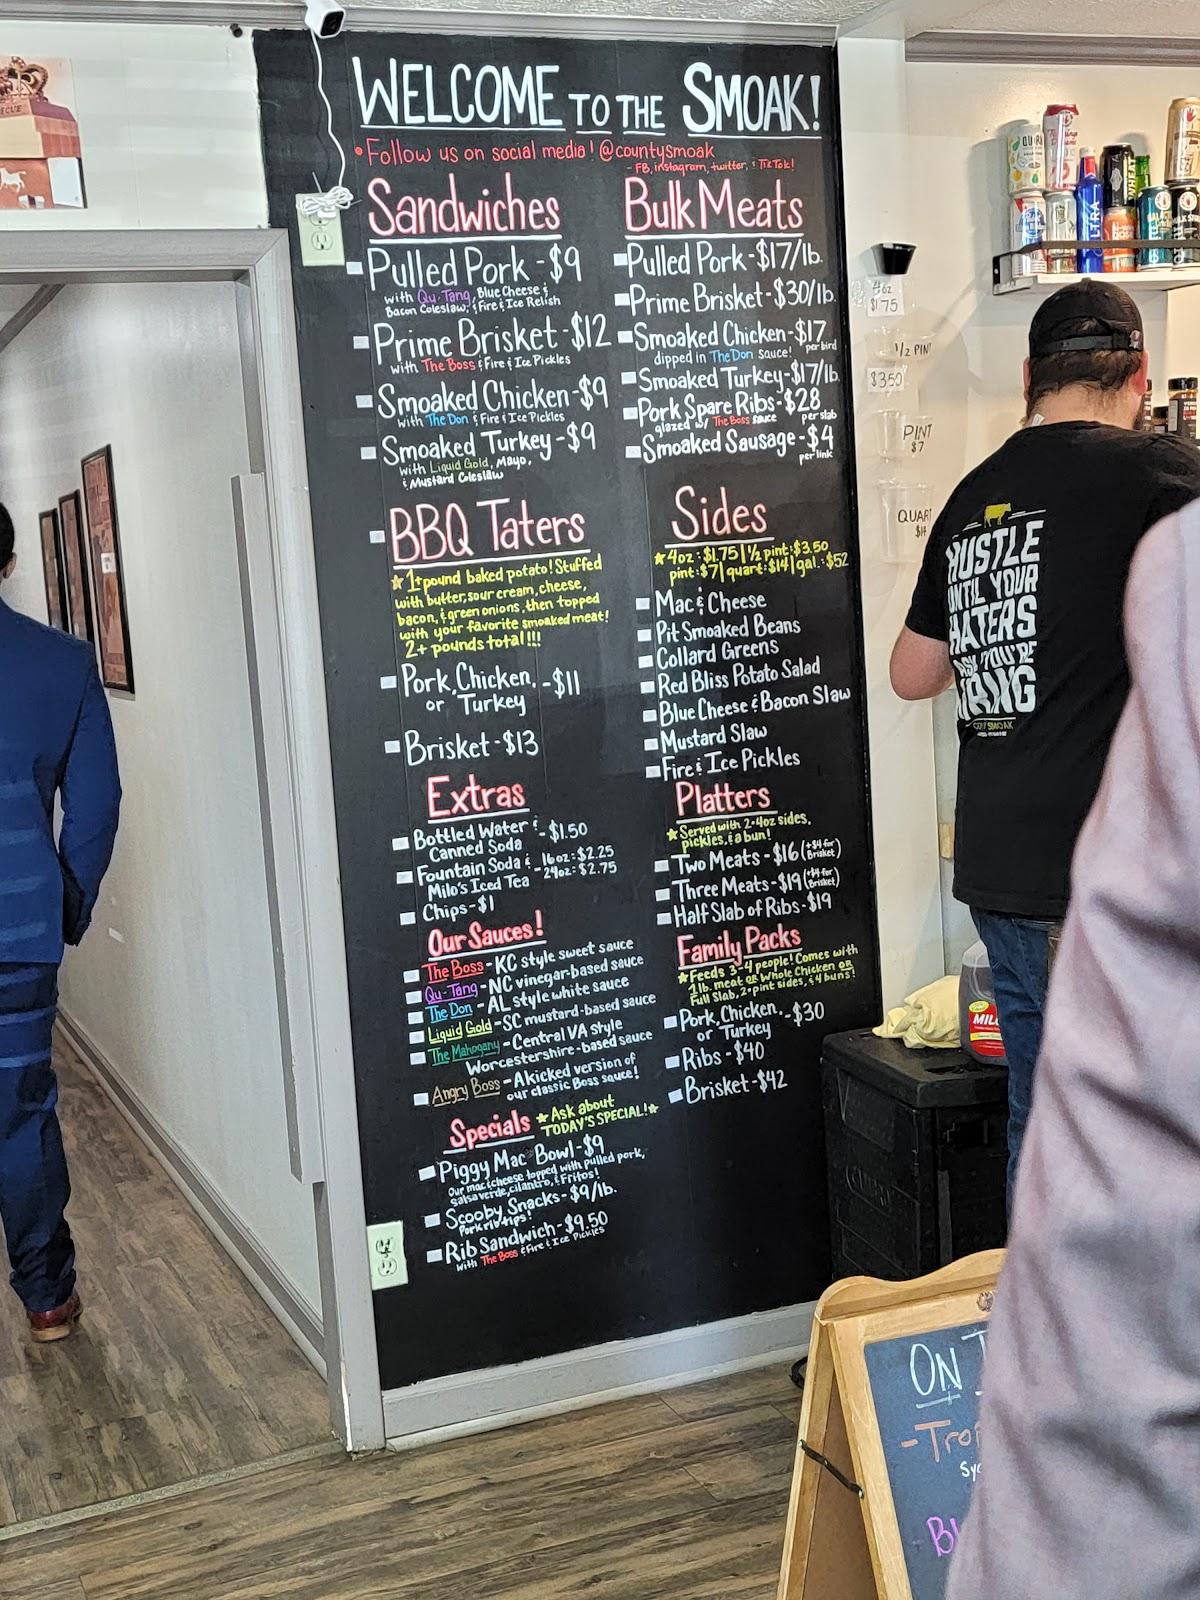 WELCOME TO THE SMOAK!
• Follow us on social media! @countysmoak
- FB, instagram, twitter, & TikTok!
Sandwiches
Pulled Pork - $9
with Qu-Tang, Blue Cheese &
Bacon Coleslaw, & Fire & Ice Relish
Prime Brisket - $12
with The Boss & Fire & Ice Pickles
Smoaked Chicken - $9
with The Don & Fire & Ice Pickles
Smoaked Turkey - $9
with Liquid Gold, Mayo,
& Mustard Coleslaw
BBQ Taters
★ 1+ pound baked potato! Stuffed
with butter, sour cream, cheese,
bacon, & green onions, then topped
with your favorite smoaked meat!
2+ pounds total!!!
Pork, Chicken, or Turkey - $11
Brisket - $13
Extras
Bottled Water & Canned Soda - $1.50
Fountain Soda & Milo's Iced Tea - 16oz: $2.25
24oz: $2.75
Chips - $1
Our Sauces!
The Boss - KC style sweet sauce
Qu-Tang - NC vinegar-based sauce
The Don - AL style white sauce
Liquid Gold - SC mustard-based sauce
The Mahogany - Central VA Style
Worcestershire-based sauce
Angry Boss - A kicked version of
our classic Boss sauce!
Specials ★ Ask about
TODAY'S SPECIAL! ★
Piggy Mac Bowl - $9
Our mac & cheese topped with pulled pork,
salsa verde, cilantro, & Fritos!
Scooby Snacks - $9/lb.
Pork rib tips!
Rib Sandwich - $9.50
with The Boss & Fire & Ice Pickles
Bulk Meats
Pulled Pork - $17/lb.
Prime Brisket - $30/lb.
Smoaked Chicken - $17
per bird
dipped in The Don sauce!
Smoaked Turkey - $17/lb.
Pork Spare Ribs - $28
per slab
glazed w/ The Boss sauce
Smoaked Sausage - $4
per link
Sides
★ 4oz: $1.75 | 1/2 pint: $3.50
pint: $7 | quart: $14 | gal.: $52
Mac & Cheese
Pit Smoaked Beans
Collard Greens
Red Bliss Potato Salad
Blue Cheese & Bacon Slaw
Mustard Slaw
Fire & Ice Pickles
Platters
★ Served with 2-4oz sides,
pickles, & a bun!
Two Meats - $16 (+$4 for Brisket)
Three Meats - $19 (+$4 for Brisket)
Half Slab of Ribs - $19
Family Packs
★ Feeds 3-4 people! Comes with
1 lb. meat OR Whole Chicken OR
Full Slab, 2-pint sides, & 4 buns!
Pork, Chicken, or Turkey - $30
Ribs - $40
Brisket - $42
4oz
$1.75
1/2 PIN
$3.50
PINT
$7
QUAR
$14
ULTRA
HUSTLE
UNTIL YOUR
HATERS
ASK YOU'RE
HIRING
MIL
ON
-Tro
Sy